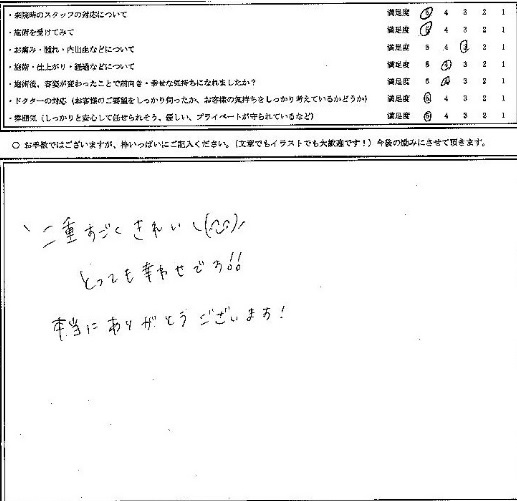 ・来院時のスタッフの対応について 満足度 5 4 3 2 1
・施術を受けてみて 満足度 5 4 3 2 1
・お痛み・腫れ・内出血などについて 満足度 5 4 3 2 1
・施術・仕上がり・経過などについて 満足度 5 4 3 2 1
・施術後、容姿が変わったことで前向き・幸せな気持ちになれましたか? 満足度 5 4 3 2 1
・ドクターの対応(お客様のご要望をしっかり伺ったか、お客様の気持ちをしっかり考えているかどうか) 満足度 5 4 3 2 1
・雰囲気(しっかりと安心して任せられそう、優しい、プライベートが守られているなど) 満足度 5 4 3 2 1
○ お手数ではございますが、枠いっぱいにご記入ください。(文章でもイラストでも大歓迎です!)今後の励みにさせて頂きます。
二重すごくきれい
とっても幸せです!!
本当にありがとうございます!